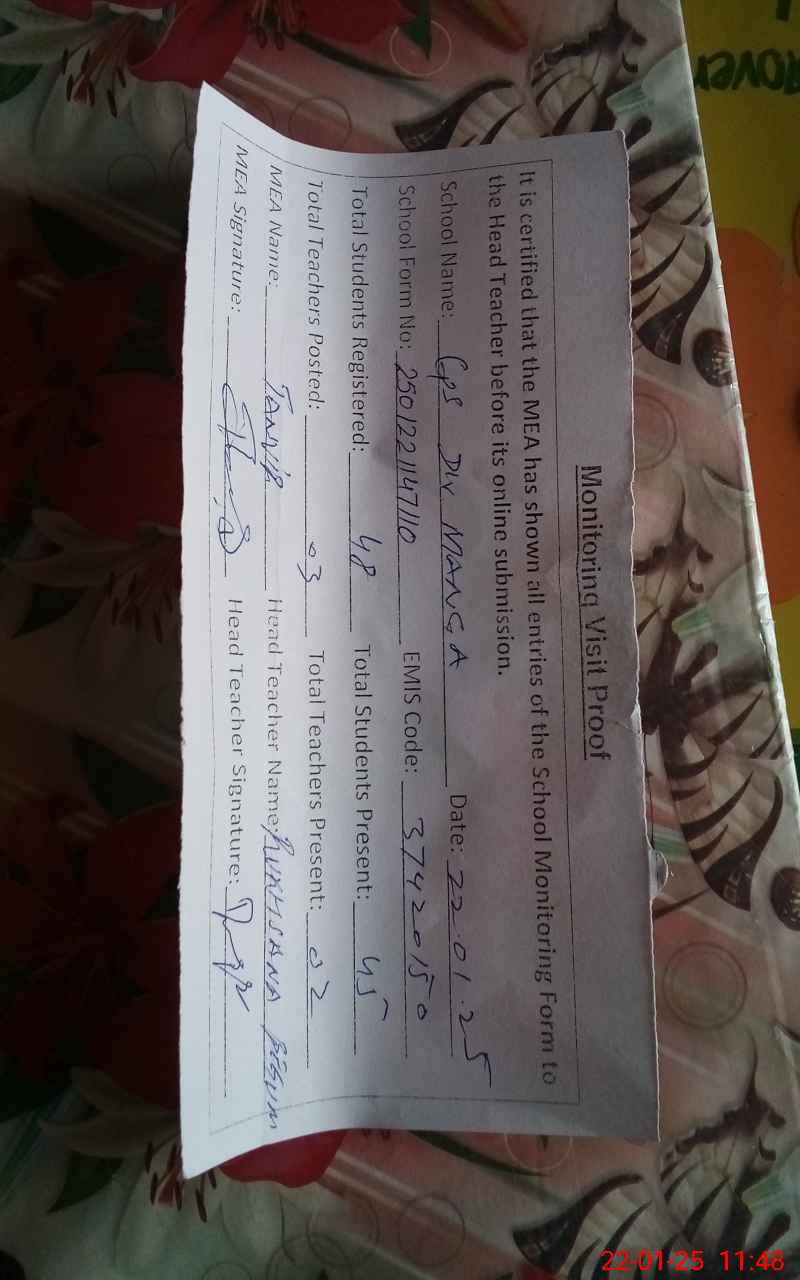 Monitoring Visit Proof
It is certified that the MEA has shown all entries of the School Monitoring Form to
the Head Teacher before its online submission.
School Name: GPS DIV MANGA Date: 22.01.25
School Form No: 250122114710 EMIS Code: 37420150
Total Students Registered: 48 Total Students Present: 45
Total Teachers Posted: 03 Total Teachers Present: 02
MEA Name: TANVIR Head Teacher Name: RUKHSANA
MEA Signature: Head Teacher Signature:
22-01-25 11:48